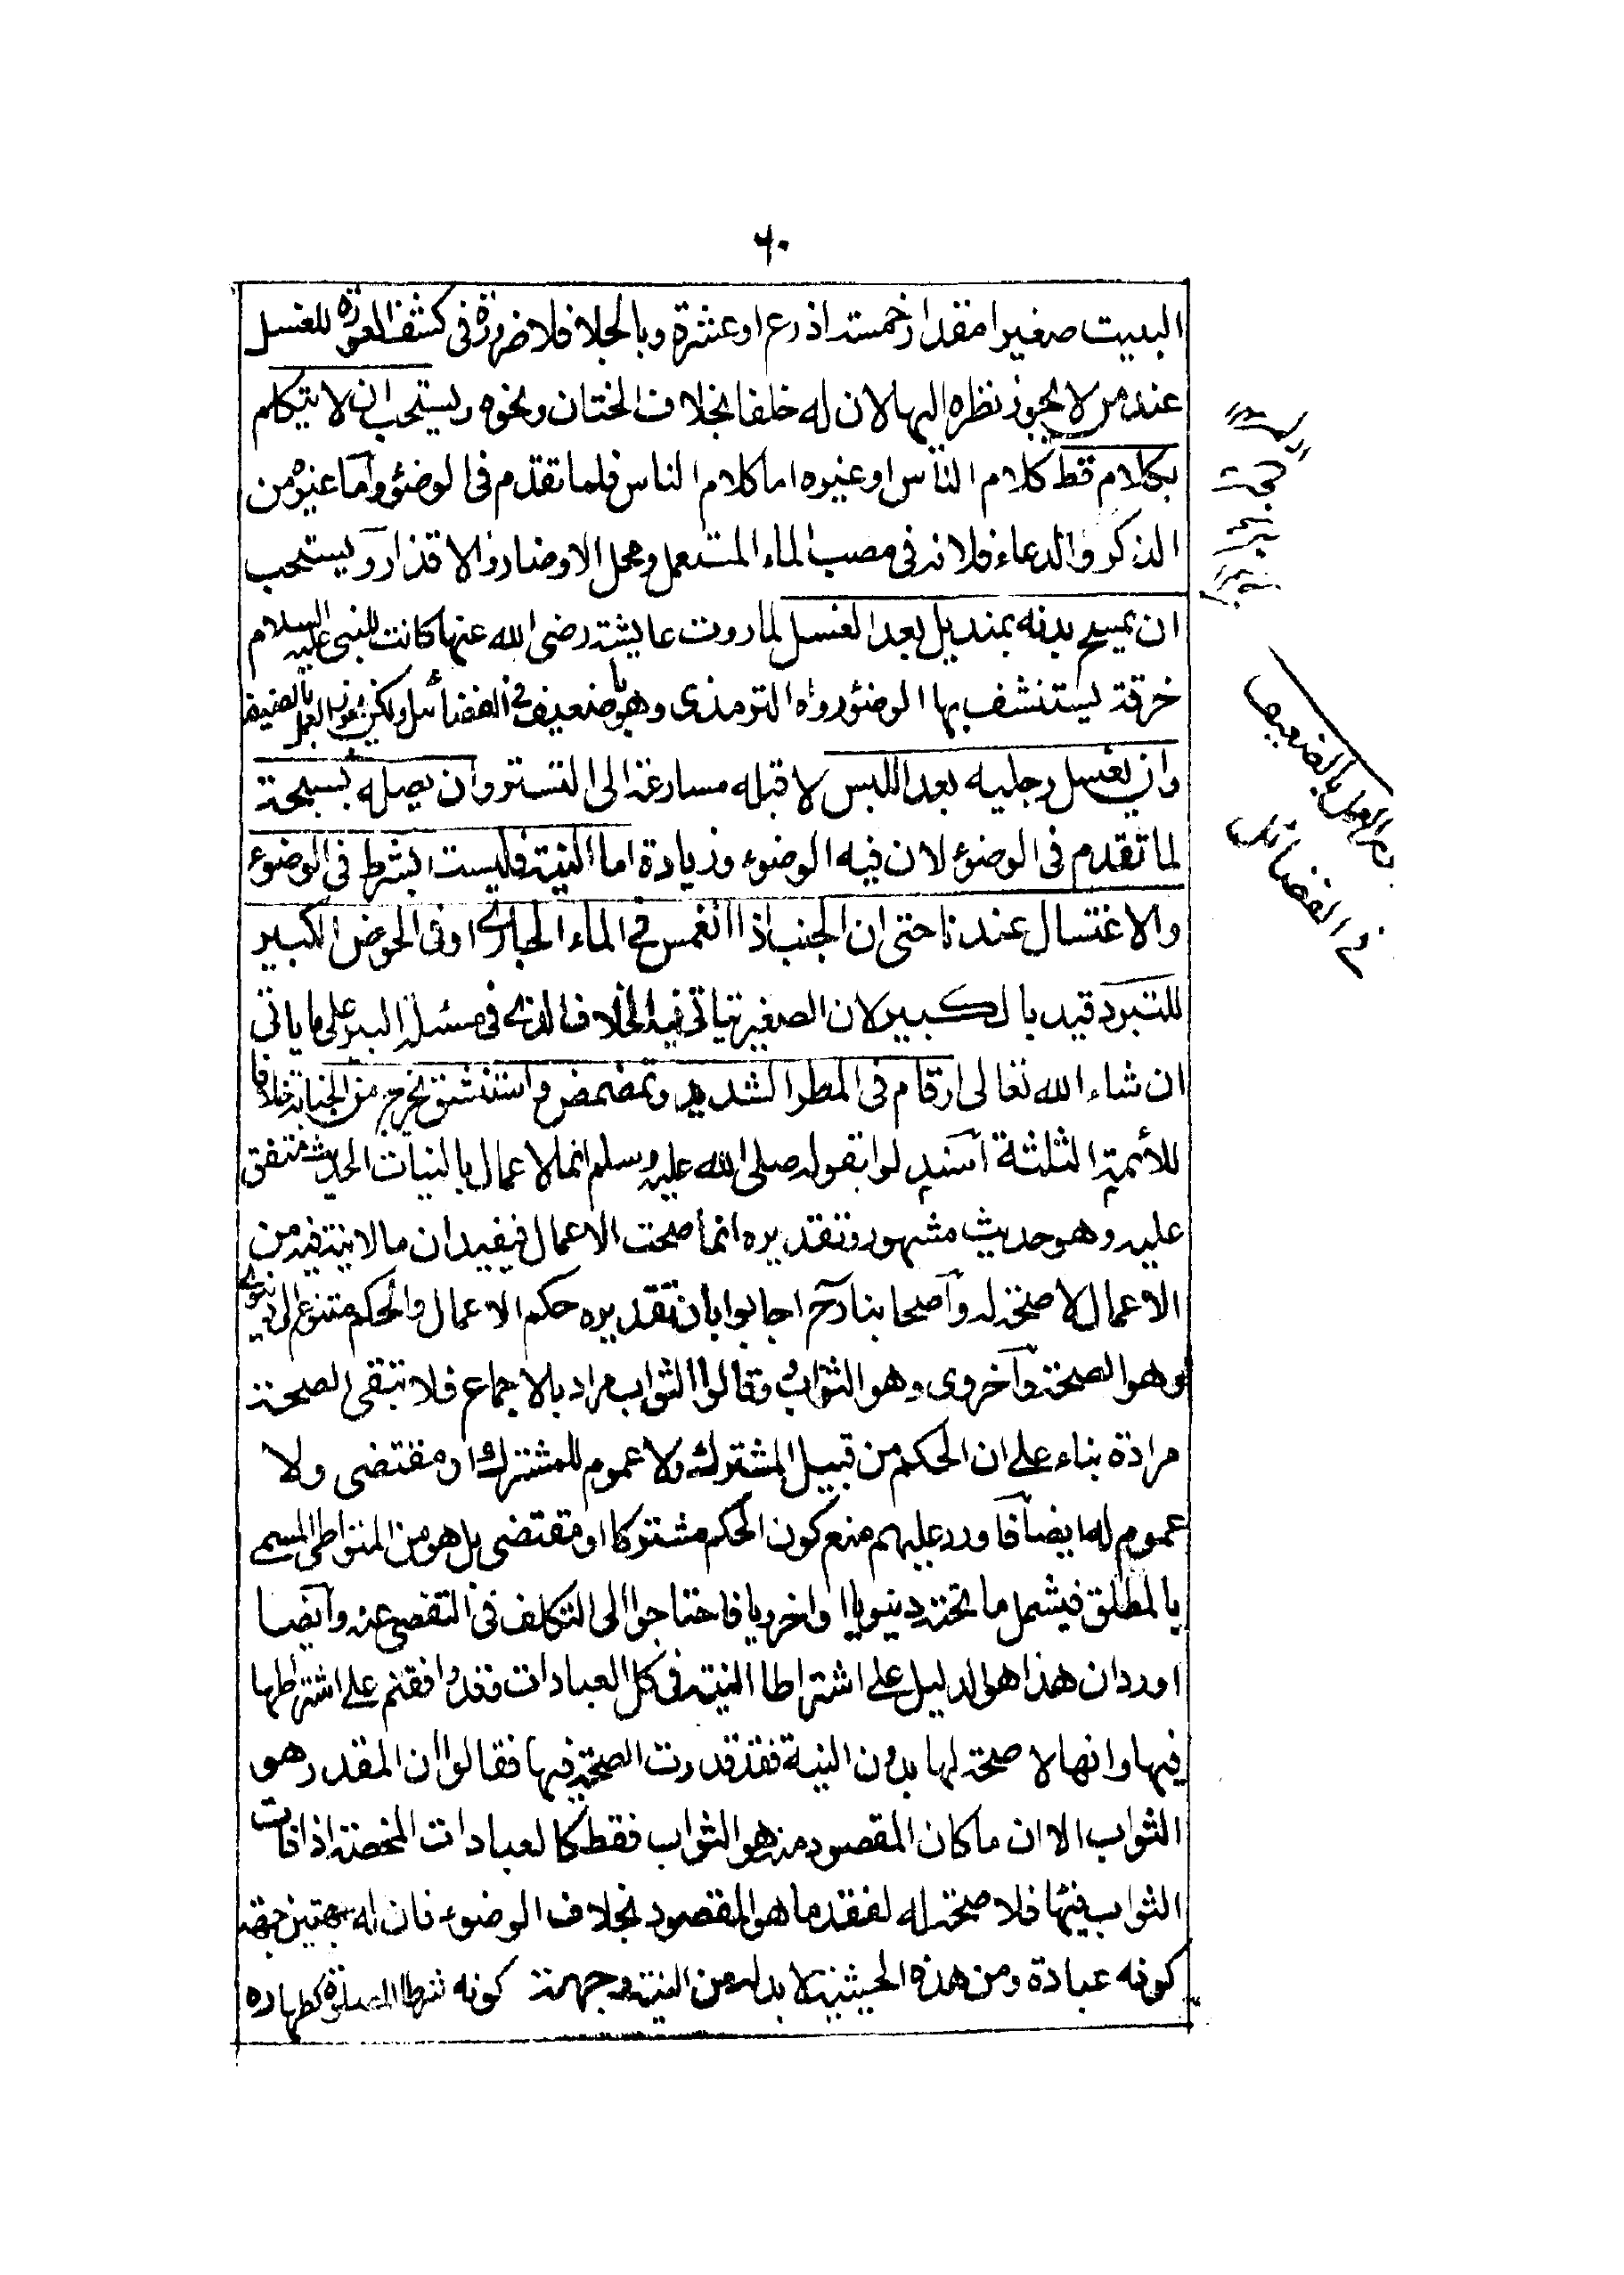 ٦٠
البيت صغيرا مقدار خمسة اذرع او عشرة وبالجلا فلا ضرورة فى كشف العورة للغسل
عند من لا يجوز نظره اليها لان له خلفا بخلاف الختان ونحوه ويستحب ان لا يتكلم
بكلام قط كلام الناس او غيره اما كلام الناس فلما تقدم فى الوضوء واما غيره من
الذكر والدعاء فلانه فى مصب الماء المستعمل ومحل الاوضار والاقذار ويستحب
ان يمسح بدنه بمنديل بعد الغسل لما روت عايشة رضى الله عنها كانت للنبى عليه السلام
خرقة يستنشف بها الوضوء رواه الترمذى وهو ضعيف فى الفضائل ولكن يجوز العمل بالضعيف
وان يغسل رجليه بعد اللبس لا قبله مسارعة الى التستر وان يصلى بسبحة
لما تقدم فى الوضوء لان فيه الوضوء وزيادة اما النية فليست بشرط فى الوضوء
والاغتسال عندنا حتى ان الجنب اذا انغمس فى الماء الجارى او فى الحوض الكبير
للتبرد قيد بالكبير لان الصغير يتاتى فيه الخلاف الذى فى مسئلة البير على ما ياتى
ان شاء الله تعالى او قام فى المطر الشديد وتمضمض واستنشق يخرج من الجنابة خلافا
للأئمة الثلثة استدلوا بقوله صلى الله عليه وسلم انما الاعمال بالنيات الحديث متفق
عليه وهو حديث مشهور وتقديره انما صحت الاعمال فيفيد ان ما لا نية فيه من
الاعمال لا صحة له واصحابنا رح اجابوا بان تقديره حكم الاعمال والحكم متنوع الى دنيوى
وهو الصحة وآخروى وهو الثواب وقالوا الثواب مراد بالاجماع فلا تبقى الصحة
مرادة بناء على ان الحكم من قبيل المشترك ولا عموم للمشترك او مقتضى ولا
عموم له ايضا فاورد عليهم منع كون الحكم مشتركا او مقتضى بل هو من المتواطى المسمى
بالمطلق فيشمل ما تحته دينويا او اخرويا فاحتاجوا الى التكلف فى التفصى عنه وايضا
اورد ان هذا هو الدليل على اشتراط النية فى كل العبادات فقد وافقتم على اشتراطها
فيها وانها لا صحة لها بدون النية فقد قدرت الصحة فيها فقالوا ان المقدر هو
الثواب الا ان ما كان المقصود منه هو الثواب فقط كالعبادات المحضة اذا فات
الثواب فيها فلا صحة له لفقد ما هو المقصود بخلاف الوضوء فان له جهتين جهة
كونه عبادة ومن هذه الحيثية لا بد له من النية وجهة كونه شرطا للصلوة كطهارة
العمل بالضعيف
فى الفضائل